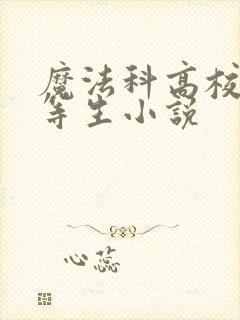 魔法科高校
等生小說
心蕊